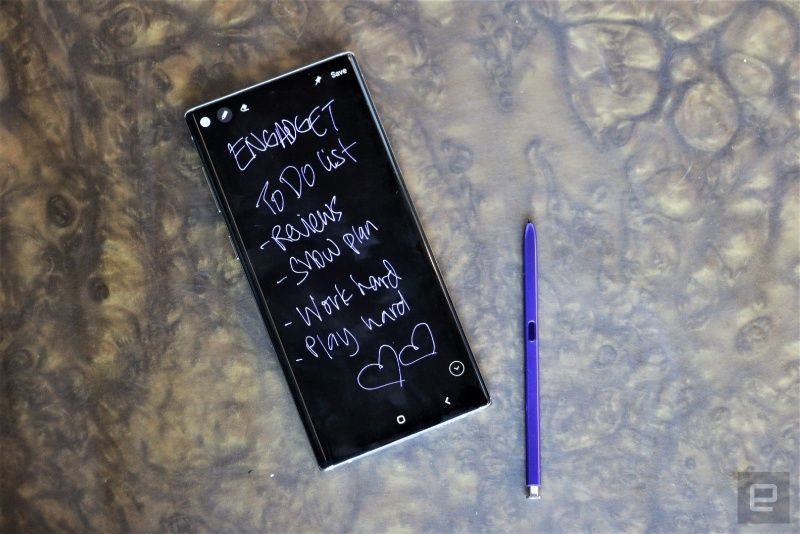 Save
ENGADGET
To Do list
- Reviews
- Show plan
- Work hard
- Play hard
e